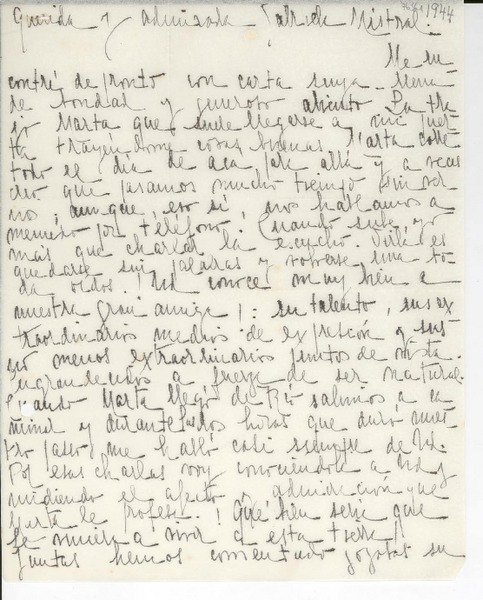 Querida y admirada Gabriela Mistral: 1944
Me en-
contré de pronto con carta suya. Llena
de bondad y generoso aliento. La tra-
jo Marta que suele llegarse a mi puer-
ta trayéndome cosas buenas. Marta corre
todo el día de acá para allá y a veces
creo que pasamos mucho tiempo sin ver-
nos, aunque, eso sí, nos hablamos a
menudo por teléfono. Cuando sube, yo
más que charlar la escucho. Vida es
quedarse sin palabras y volverse una to-
da oídos. ¡Ud conoce muy bien a
nuestra gran amiga!: su talento, sus ex-
traordinarios medios de expresión y sus
no menos extraordinarios puntos de vista
a fuerza de ser natural.
Cuando Marta llegó de Río salimos a ca-
minar y durante las dos horas que duró nues-
tro paseo, me habló casi siempre de Ud.
Por esas charlas voy conociendo a Ud y
midiendo el afecto y admiración que
Marta le profesa. ¡Qué bien sería que
se venga a vivir a esta tierra!
Juntas hemos comentado gozosas su